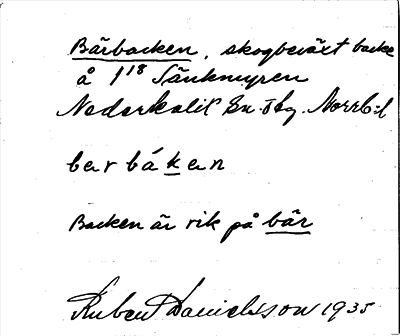 Bärbacken, skogbeväxt backe
å 1¹¹⁸ Sänkmyren
Nederkalix Sn. Norrb:l
bervbáken
Backen är rik på bär
Ruben Danielsson 1935